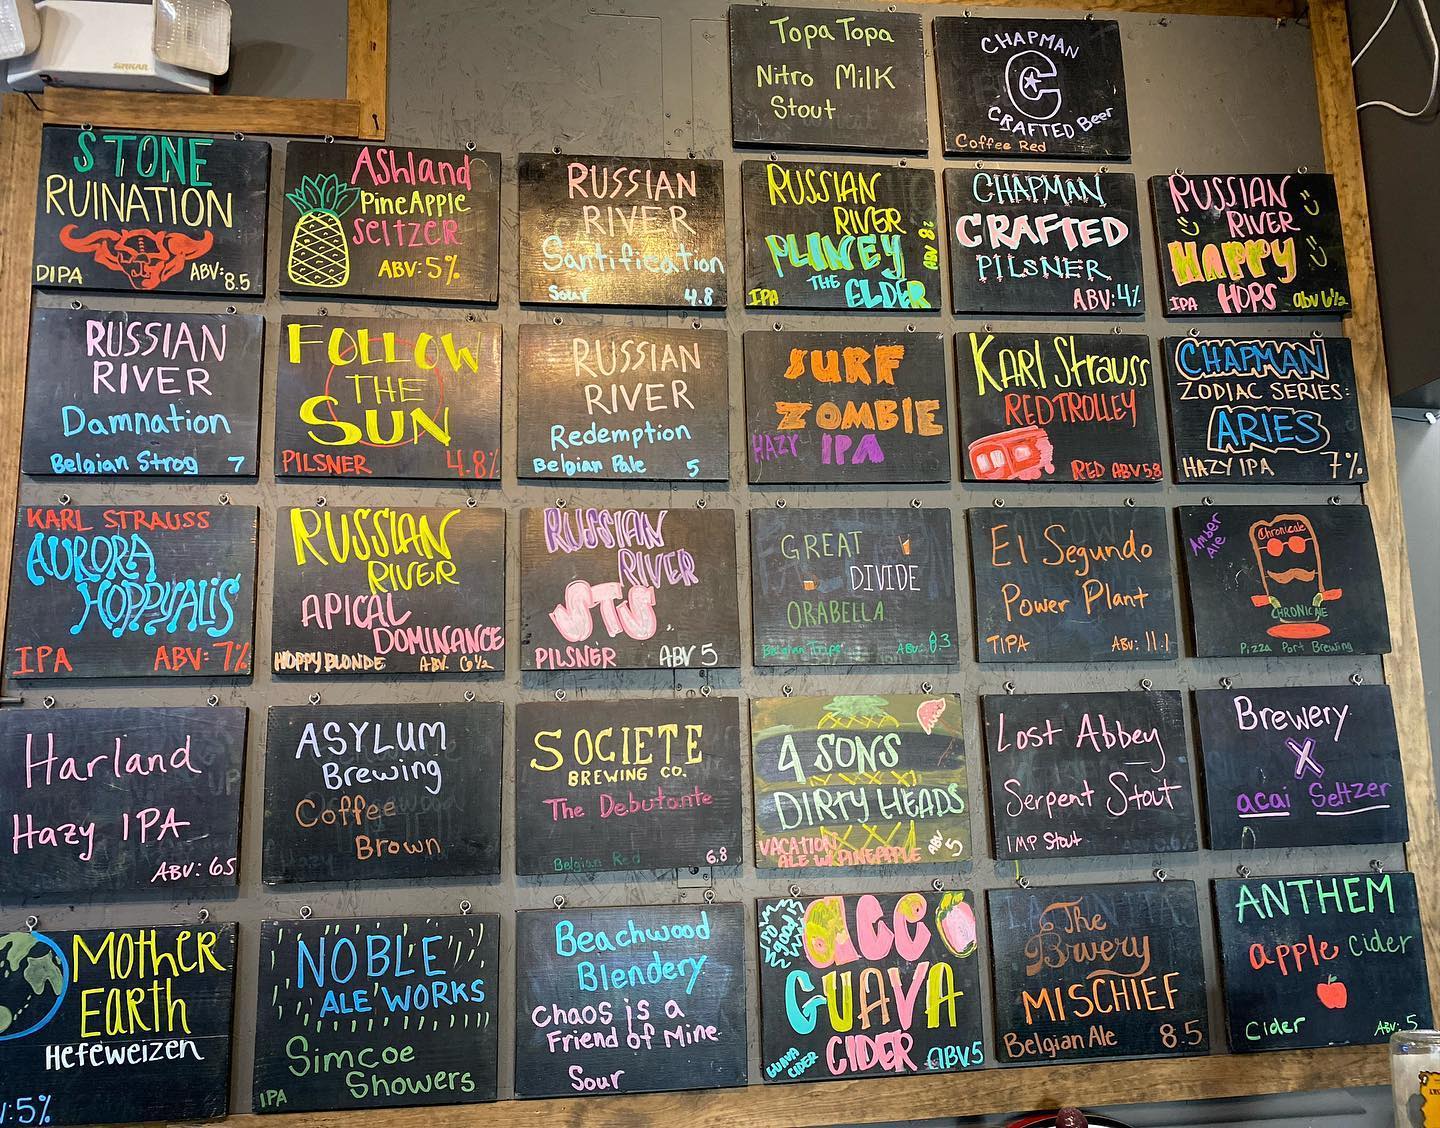 SIRKAR
Topa Topa
Nitro Milk
Stout
CHAPMAN
C
CRAFTED Beer
Coffee Red
STONE
RUINATION
DIPA
ABV: 8.5
Ashland
PineApple
Seltzer
ABV: 5%
RUSSIAN
RIVER
Santification
Sour 4.8
RUSSIAN
RIVER
PLINEY
THE
ELDER
IPA
ABV 8%
CHAPMAN
CRAFTED
PILSNER
ABV: 4%
RUSSIAN
RIVER
HAPPY
HOPS
IPA
abv 6½
RUSSIAN
RIVER
Damnation
Belgian Strog 7
FOLLOW
THE
SUN
PILSNER 4.8%
RUSSIAN
RIVER
Redemption
Belgian Pale 5
SURF
ZOMBIE
HAZY IPA
Karl Strauss
RED TROLLEY
RED ABV 5.8
CHAPMAN
ZODIAC SERIES:
ARIES
HAZY IPA 7%
KARL STRAUSS
AURORA
HOPPYALIS
IPA ABV: 7%
RUSSIAN
RIVER
APICAL
DOMINANCE
HOPPY BLONDE ABV 6½
RUSSIAN
RIVER
STS
PILSNER ABV 5
GREAT
DIVIDE
ORABELLA
Belgian Tripel
ABV: 8.3
El Segundo
Power Plant
TIPA ABV: 11.1
Amber
Ale
Chronicale
CHRONIC ALE
Pizza Port Brewing
Harland
Hazy IPA
ABV: 6.5
ASYLUM
Brewing
Coffee
Brown
SOCIETE
BREWING CO.
The Debutante
Belgian Red 6.8
4 SONS
DIRTY HEADS
VACATION
ALE W/ PINEAPPLE
ABV 5
Lost Abbey
Serpent Stout
IMP Stout
Brewery
X
acai Seltzer
MOTHER
EARTH
Hefeweizen
V: 5%
NOBLE
ALE WORKS
Simcoe
Showers
IPA
Beachwood
Blendery
Chaos is a
Friend of Mine
Sour
SO
GOOD!
ace
GUAVA
CIDER
GUAVA
CIDER
ABV 5
The
Bruery
MISCHIEF
Belgian Ale 8.5
ANTHEM
apple cider
Cider ABV: 5